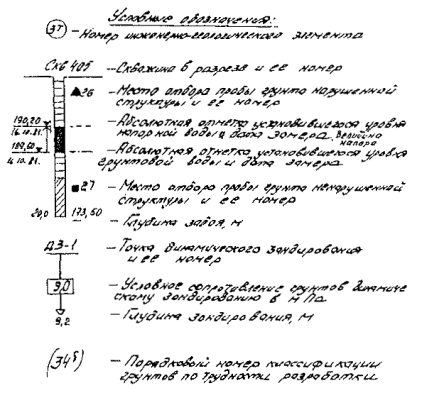 Условные обозначения:
37 – Номер инженерно-геологического элемента
Скв 405 – Скважина в разрезе и ее номер
26 – Место отбора пробы грунта нарушенной
структуры и ее номер
190,20
16.10.81. – Абсолютная отметка установившегося уровня
напорной воды и дата замера. Величина
напора
189,60
4.10.81. – Абсолютная отметка установившегося уровня
грунтовой воды и дата замера
27 – Место отбора пробы грунта ненарушенной
структуры и ее номер
20,0 173,60
– Глубина забоя, м
ДЗ-1 – Точка динамического зондирования
и ее номер
9,0 – Условное сопротивление грунтов динамиче
скому зондированию в МПа
9,2 – Глубина зондирования, м
(34б) – Порядковый номер классификации
грунтов по трудности разработки